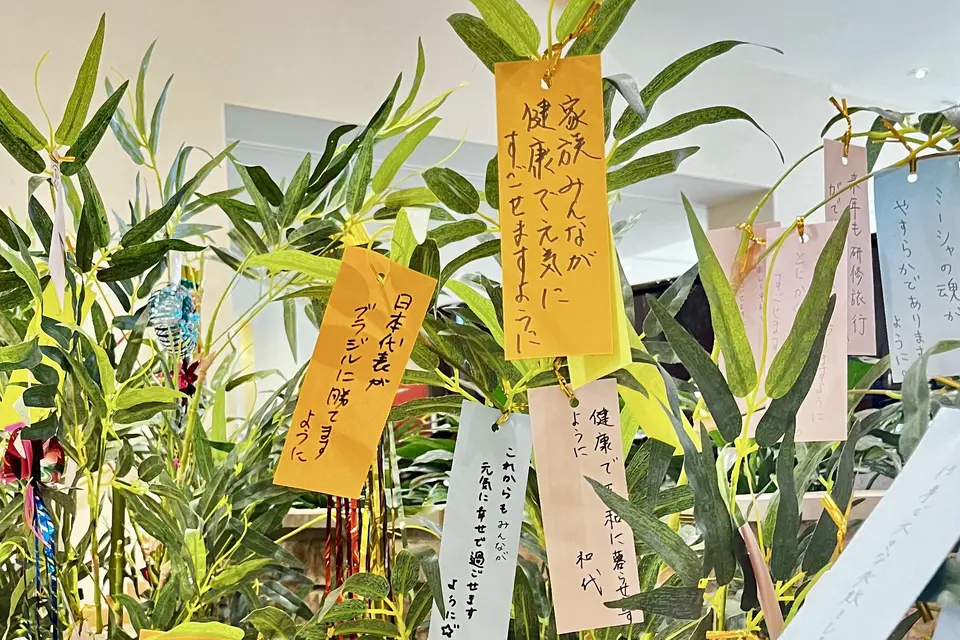 日本代表が
ブラジルに勝てます
ように
家族みんなが
健康で元気に
すごせますように
これからもみんなが
元気に幸せで過ごせます
ように☆
健康で 和に暮らせます
ように
和代
来年も研修旅行
がで
ミーシャの魂が
やすらかであります
ように